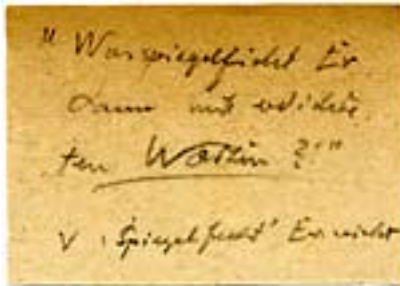 " Was spiegelficht Er
dann mit
ten Worten ? "
V. Spiegelfecht' Er nicht